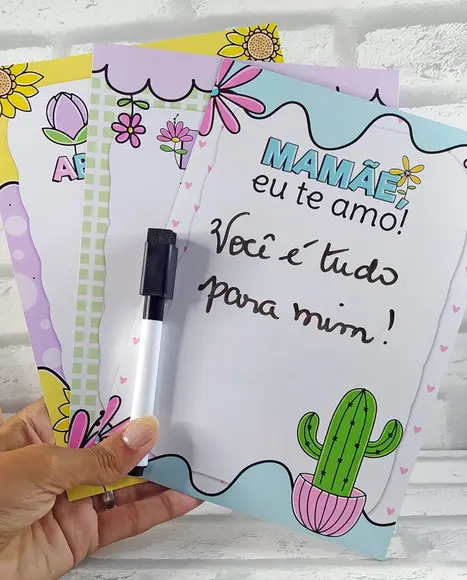 MAMÃE,
eu te amo!
Você é tudo
para mim!